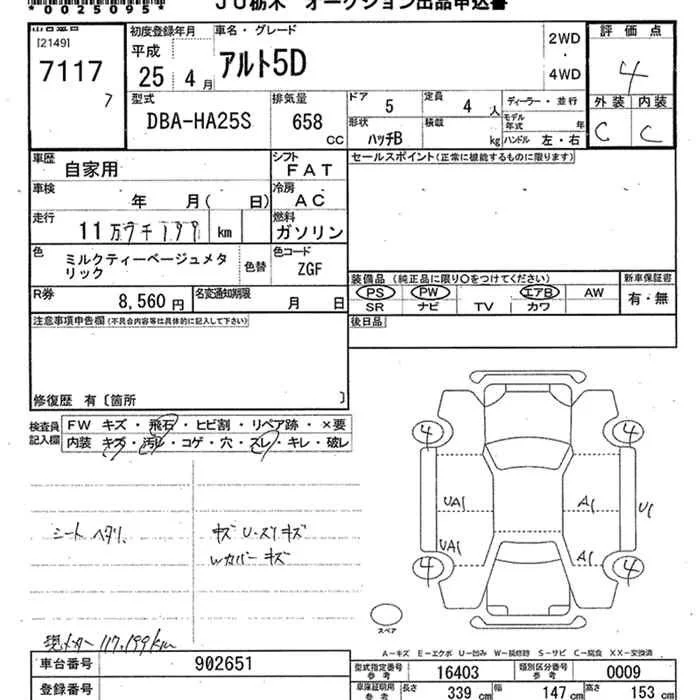 *0025095*
JU栃木 オークション出品申込書
出品番号
[2149]
7117
7
初度登録年月
平成
25 4月
車名・グレード
アルト5D
2WD
・
4WD
評価点
4
外装 内装
C C
型式
DBA-HA25S
排気量
658
cc
ドア
5
定員
4 人
形状
ハッチB
積載
kg
ディーラー・並行
モデル年式 年
ハンドル 左・右
車歴
自家用
シフト
FAT
車検
年 月( 日)
冷房
AC
走行
11万7千199 km
燃料
ガソリン
色
ミルクティーベージュメタ
リック
色替
色コード
ZGF
R券
8,560円
名変通知期限
月 日
セールスポイント(正常に機能するものに限ります)
装備品(純正品に限り〇をつけてください)
新車保証書
PS PW エアB AW
SR ナビ TV カワ
有・無
後日品
注意事項申告欄(不具合内容等は具体的に記入して下さい)
修復歴 有〔箇所 〕
検査員
記入欄
FW キズ・飛石・ヒビ割・リペア跡・×要
内装 キズ・汚れ・コゲ・穴・スレ・キレ・破レ
シート ヘタリ、
キズ U・スリキズ
Wカバー キズ
現メーター 117,199km
4 4
UA1 A1 U1
UA1 A1
4 4
スペア
A-キズ E-エクボ U-凹み W-板修跡 S-サビ C-腐食 XX-交換済
車台番号
902651
登録番号
型式指定番号
参考
16403
類別区分番号
参考
0009
車庫証明用
参考
長さ
339 cm
幅
147 cm
高さ
153 cm